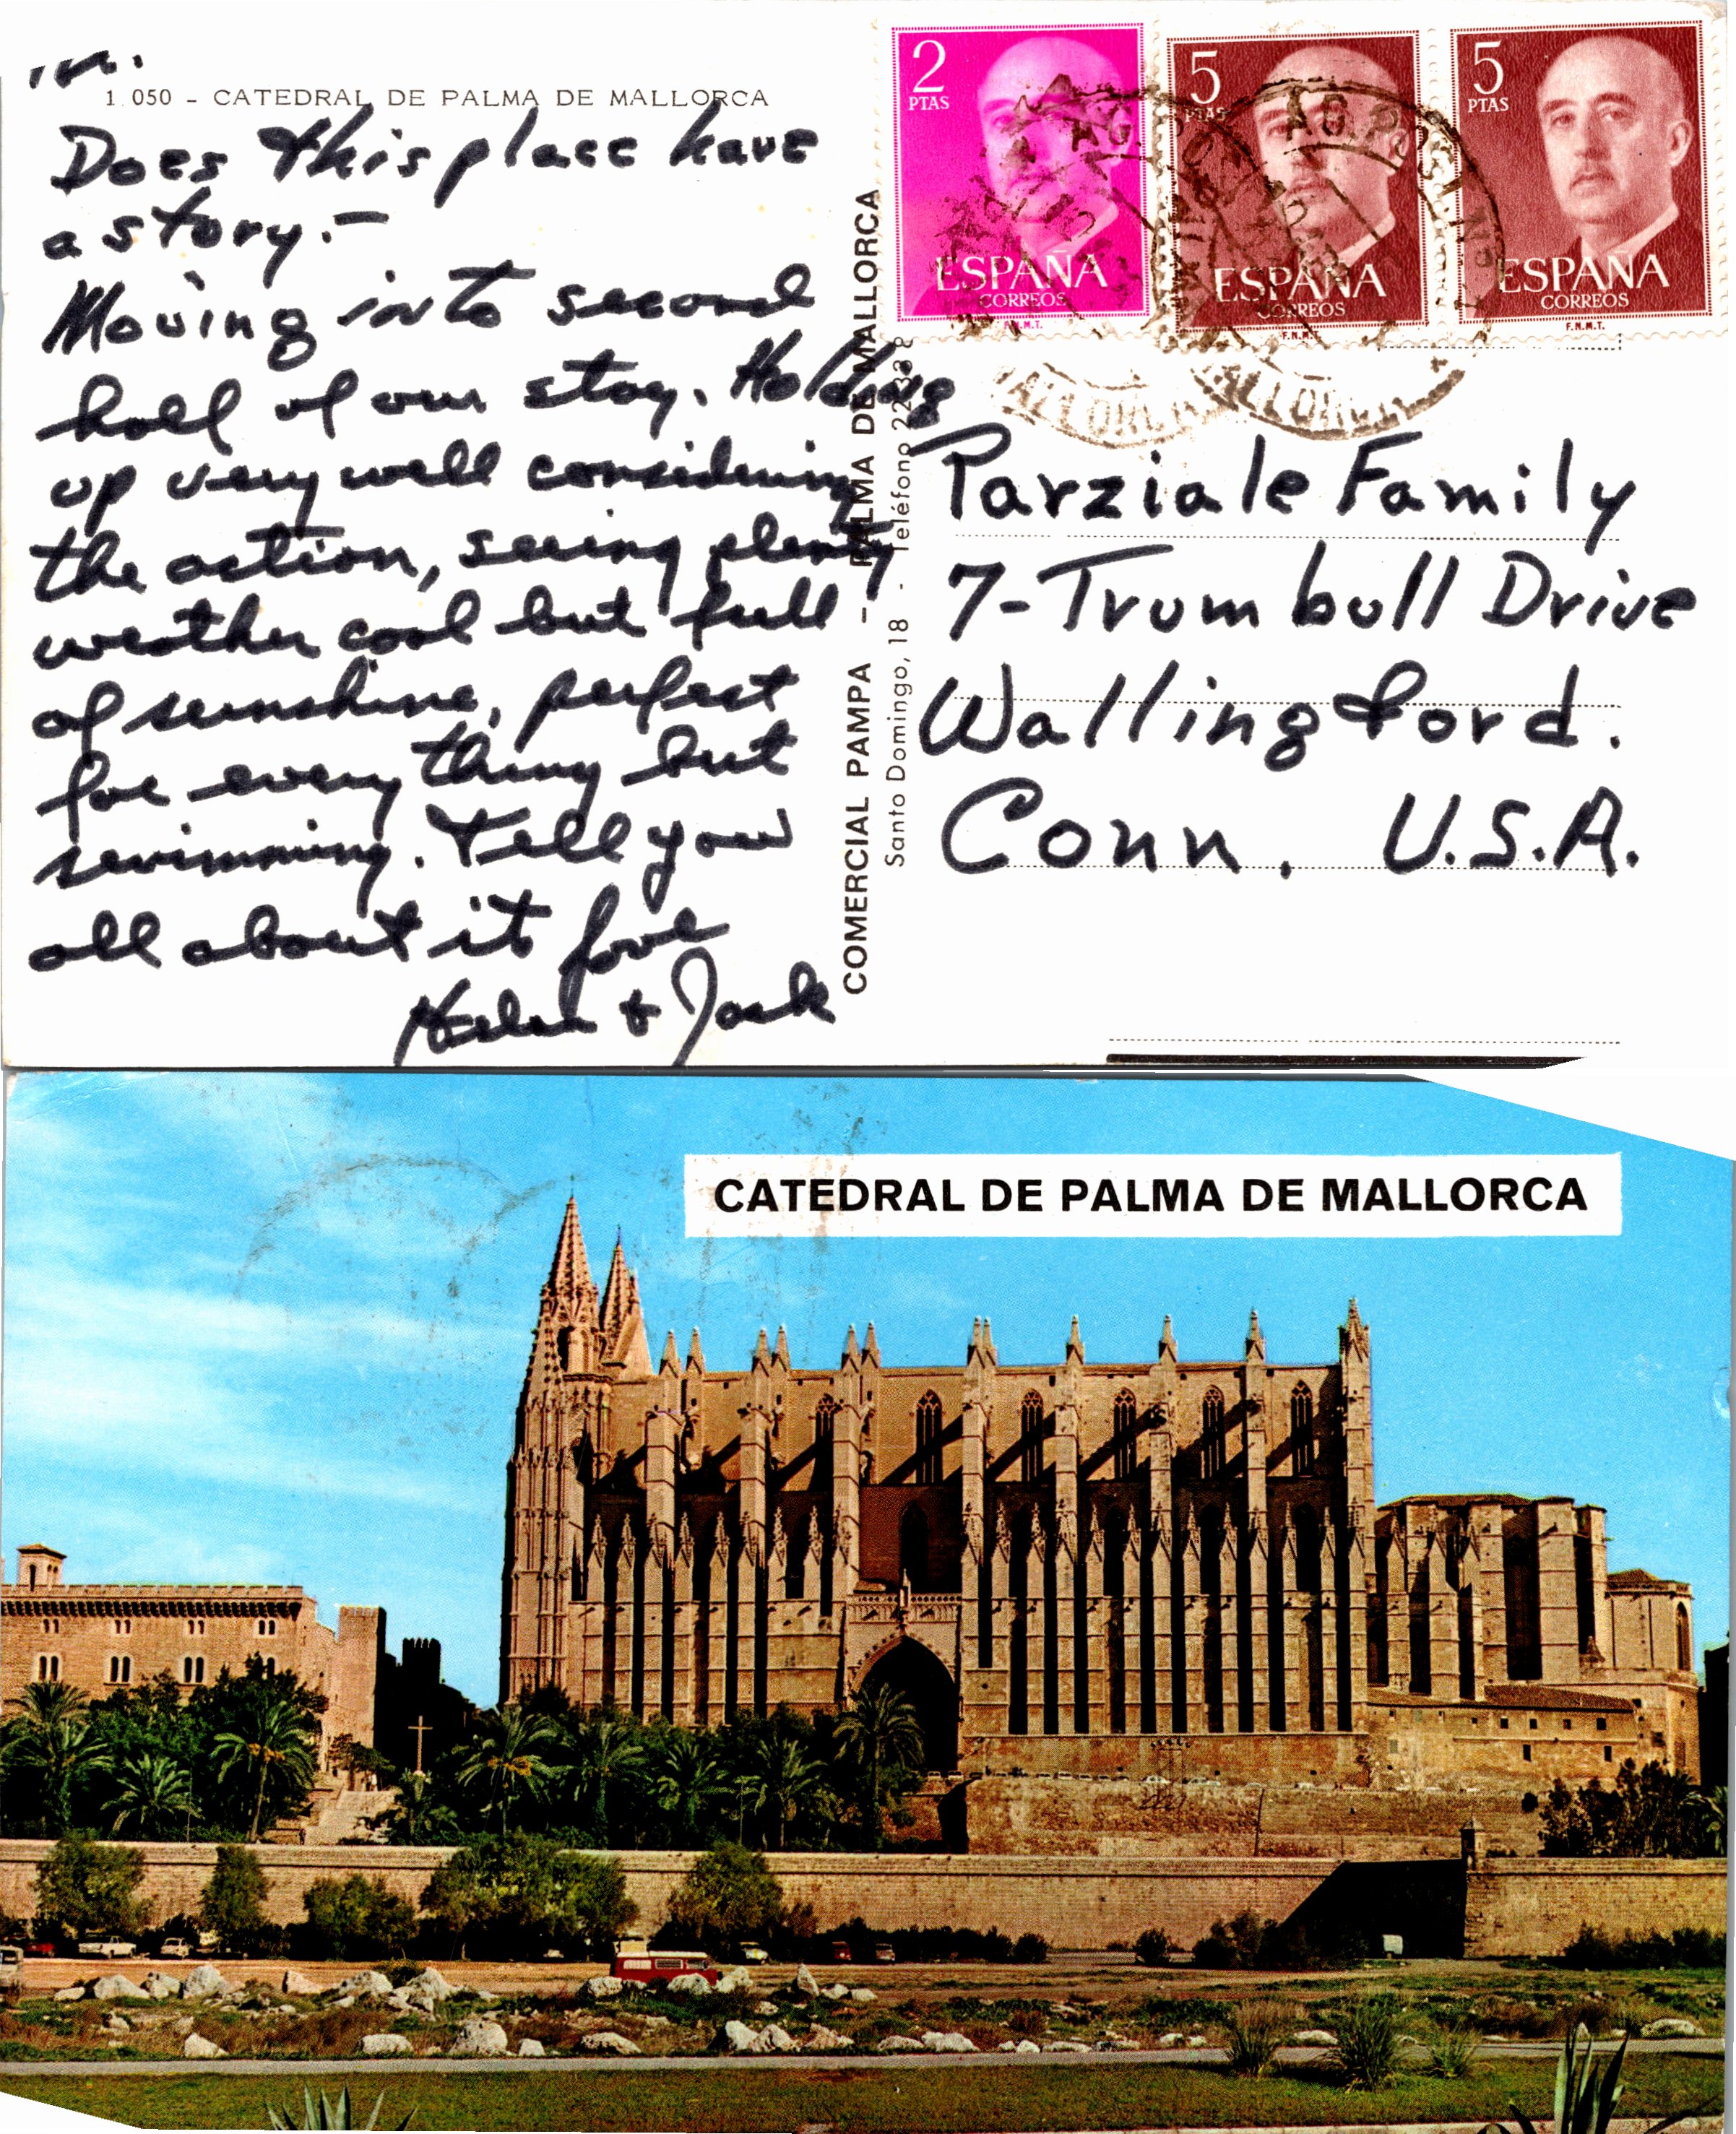 1.050 - CATEDRAL DE PALMA DE MALLORCA
Does this place have
a story.-
Moving into second
half of our stay. Holding
up very well considering
the action, seeing plenty
weather cool but full
of sunshine, perfect
for every thing but
swimming. Tell you
all about it love
Helen & Jack
COMERCIAL PAMPA - PALMA DE MALLORCA
Santo Domingo, 18 - Teléfono
2
PTAS
ESPAÑA
CORREOS
F.N.M.T.
5
PTAS
ESPAÑA
CORREOS
F.N.M.T.
5
PTAS
ESPAÑA
CORREOS
F.N.M.T.
Parziale Family
7-Trumbull Drive
Wallingford.
Conn, U.S.A.
CATEDRAL DE PALMA DE MALLORCA